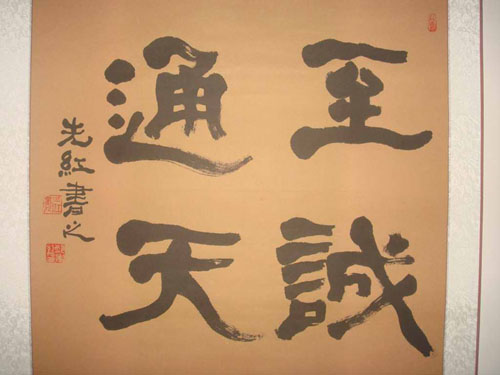 至誠
通天
先紅書之